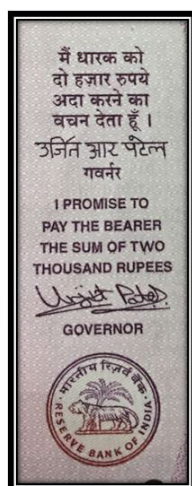 मैं धारक को
दो हज़ार रुपये
अदा करने का
वचन देता हूँ ।
उर्जित आर पटेल
गवर्नर
I PROMISE TO
PAY THE BEARER
THE SUM OF TWO
THOUSAND RUPEES
Urjit Patel
GOVERNOR
भारतीय रिज़र्व बैंक
RESERVE BANK OF INDIA